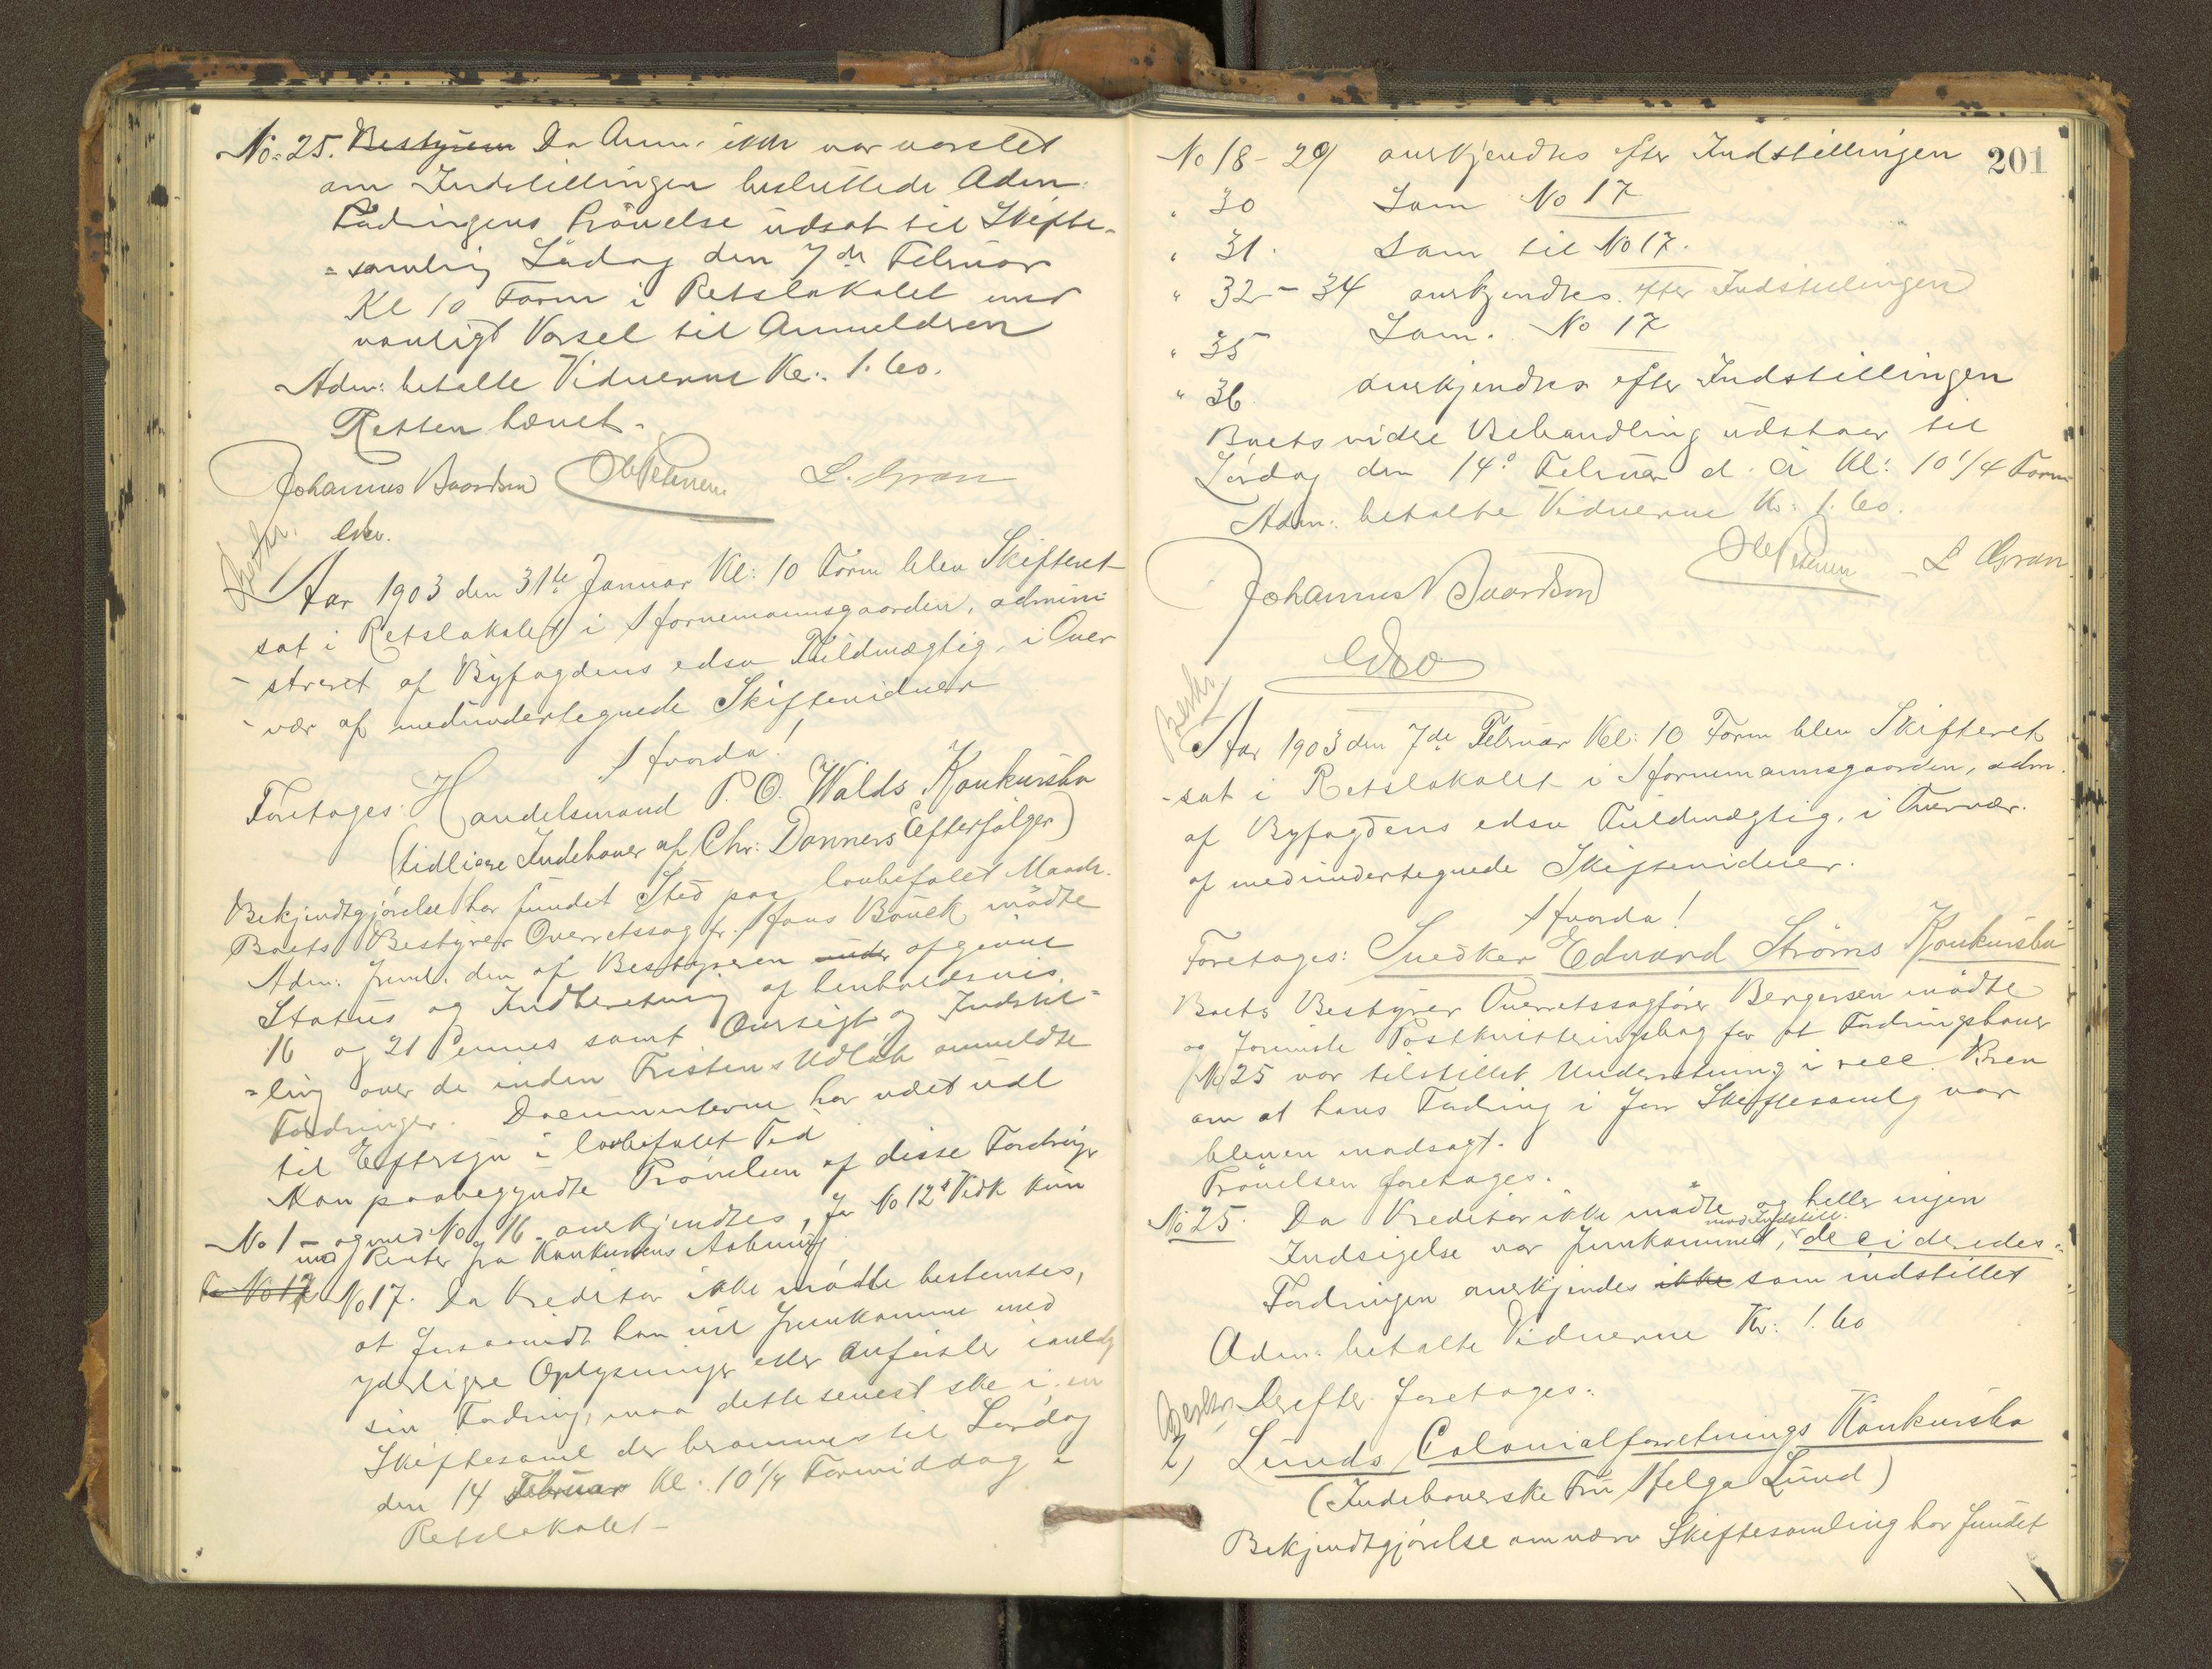 No: 25. Bestyrem Da Anm. ikke var varslet
om Indstillingen besluttede Adm:
Fordringens Prövelse udsat til Skifte-
=samling Lördag den 7de Februar
Kl 10 Form i Retslokalet med
vanligt Varsel til Anmelderen
Adm: betalte Vidnerne Kr: 1.60.
Retten hævet.
Johannes Baardsen Ole Petersen L. Gran
edsv.
Beskr.
Aar 1903 den 31te Januar Kl: 10 Form blev Skifteret
sat i Retslokalet i Hornemannsgaarden, admini-
-streret af Byfogdens edsv Fuldmægtig, i Over
-vær af medundertegnede Skiftevidner
Hvorda!
Foretages: Handelsmand P. O. Walds Konkursbo
(tidligere Indehaver af Chr: Donners Efterfölger)
Bekjendtgjörelse har fundet Sted paa lovbefalet Maade.
Boets Bestyrer Overretssagfr. Hans Bauck mödte
Adm: freml. den af Bestyreren under afgivne
Status og Indberetning af henholdsvis
16 og 21 Dennes samt Oversigt og Indstil=
=ling over de inden Fristens Udlöb anmeldte
Fordringer. Documenterne har været udl
til Eftersyn i lovbefalet Tid
Man paabegyndte Prövelsen af disse Fordringer
No 1 - og med No 16. anerkjendtes, for No 12s Vedk kun
med Renter fra Konkursens Aabning
No 17 No 17. Da Kreditor ikke mödte bestemtes,
at forsaavidt han vil fremkomme med
yderligere Oplysninger eller Anförsler
sin Fordring, maa dette senest ske i en
Skiftesaml der berammes til Lördag
den 14 Februar Kl: 10 1/4 Formiddag i
Retslokalet -
201
No 18 - 29 anerkjendtes efter Indstillingen
" 30 Som No 17
" 31. Som til No 17.
" 32 - 34 anerkjendtes efter Indstillingen
" 35 Som. No 17
" 36. anerkjendtes efter Indstillingen
Boets videre Behandling udstaar til
Lördag den 14de Februar d. A Kl: 10 1/4 Form
Adm: betalte Vidnerne Kr: 1.60.
Ole Petersen L Gran
Johannes Baardsen
edsv
Beskr.
Aar 1903 den 7de Februar Kl: 10 Form blev Skifteret
-sat i Retslokalet i Hornemannsgaarden, adm.
af Byfogdens edsv Fuldmægtig, i Overvær.
af medundertegnede Skiftevidner.
Hvorda!
Foretages: Snedker Edvard Ströms Konkursbo
Boets Bestyrer Overretssagförer Bergersen mödte
og foreviste Postkvitteringsbog for at Fordringshaver
No 25 var tilstillet Underretning i rec. Brev
om at hans Fordring i forr Skiftesamlg var
bleven modsagt.
Prövelsen foretages.
No 25. Da Kreditor ikke mödte og heller ingen
Indsigelse var fremkommet, mod Indstill. decideredes:
Fordringen anerkjendes ikke som indstillet
Adm: betalte Vidnerne Kr: 1.60
Beskr. Derefter foretages:
2) Lunds Colonialforretnings Konkursbo
(Indehaverske Fru Helga Lund)
Bekjendtgjörelse om nærv Skiftesamling har fundet